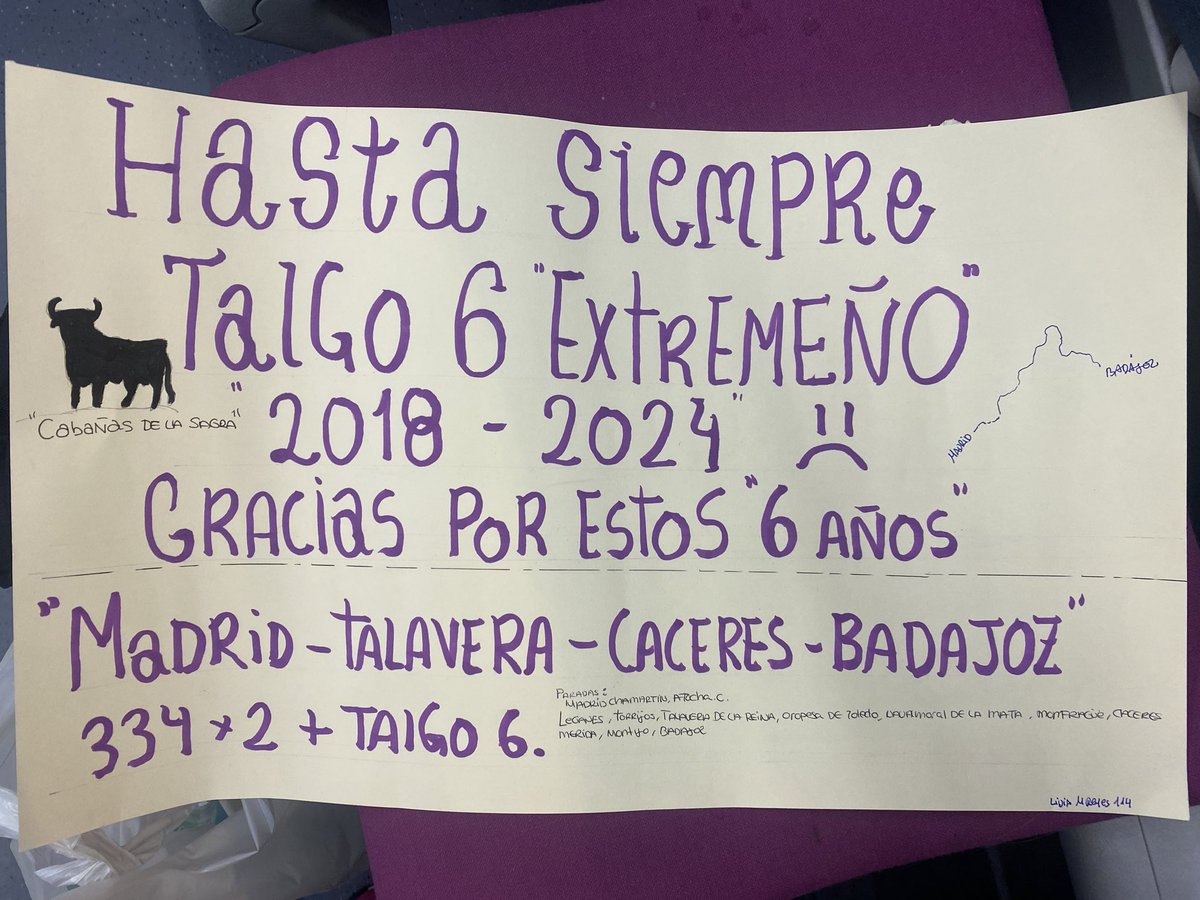 Hasta siempre
Talgo 6 "Extremeño"
"2018 - 2024"
"Cabañas de la Sagra"
Madrid
Badájoz
Gracias por estos "6 años"
"Madrid - Talavera - Caceres - Badajoz"
334 x 2 + Talgo 6.
Paradas:
Madrid Chamartin, Atocha C.
Leganes, Torrijos, Talavera de la Reina, Oropesa de Toledo, Navalmoral de la Mata, Monfragüe, Caceres
Merida, Montijo, Badajoz
Lidia 114